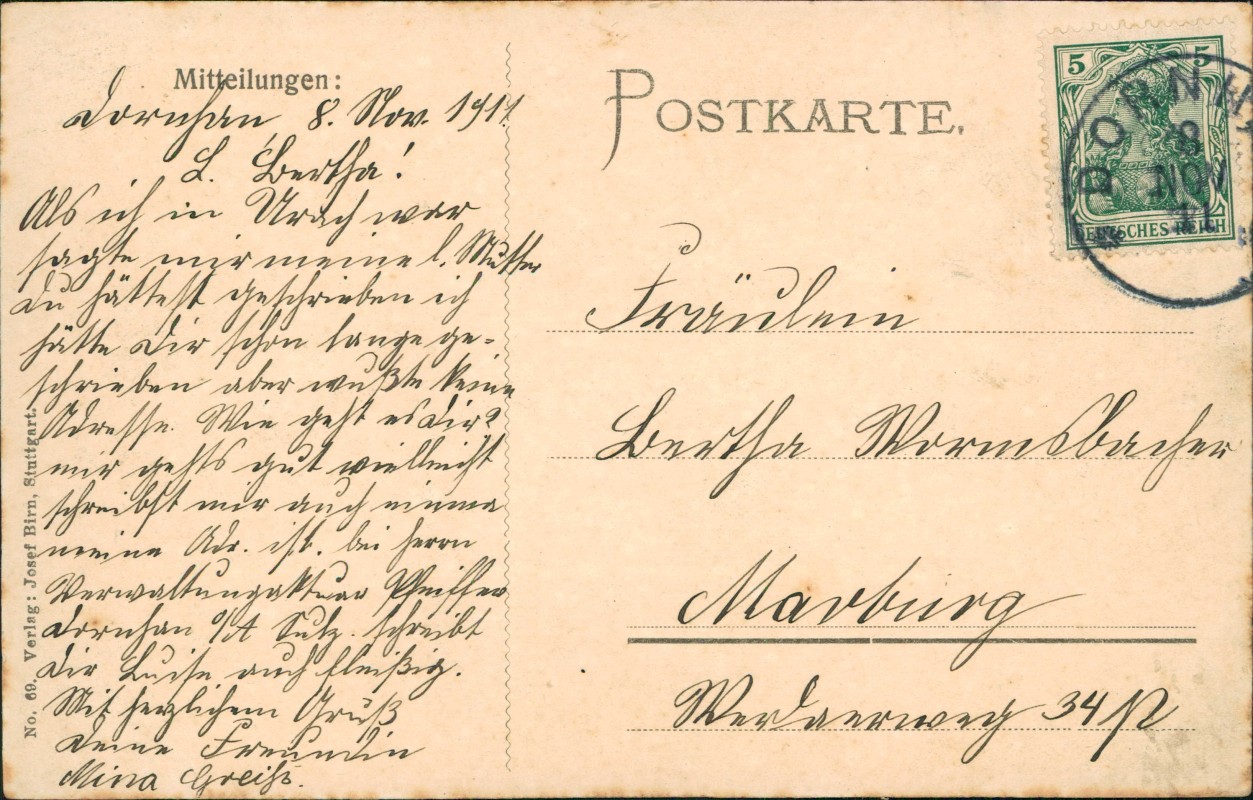 Mitteilungen:
Dornhan, 8. Nov. 1911.
L. Bertha!
Als ich in Urach war
sagte mir meine l. Mutter
Du hättest geschrieben ich
hätte Dir schon lange ge-
schrieben aber wußte keine
Adresse. Wie geht es Dir?
mir gehts gut vielleicht
schreibst mir auch einma
meine Adr. ist. bei Herrn
Verwaltungaktuar Pfeiffer
Dornhan O/A Sulz. schreibt
Dir Luise auch fleißig.
Mit herzlichem Gruß
Deine Freundin
Mina Greiß.
No. 69. Verlag: Josef Birn, Stuttgart.
POSTKARTE.
5 5
DEUTSCHES REICH
DORNHA
8
NOV
11
Fräulein
Bertha Wormsbacher
Marburg
Werdaerweg 34 p